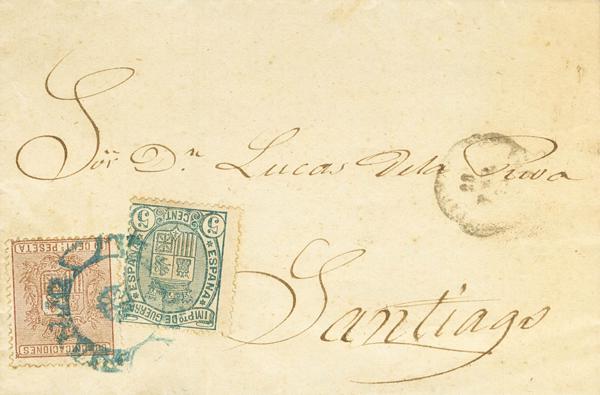 Sor. Dn. Lucas de la Riva
Santiago
5 CENT. 5
ESPAÑA
ESPAÑA
IMPTO DE GUERRA
CENT. PESETA
COMUNICACIONES